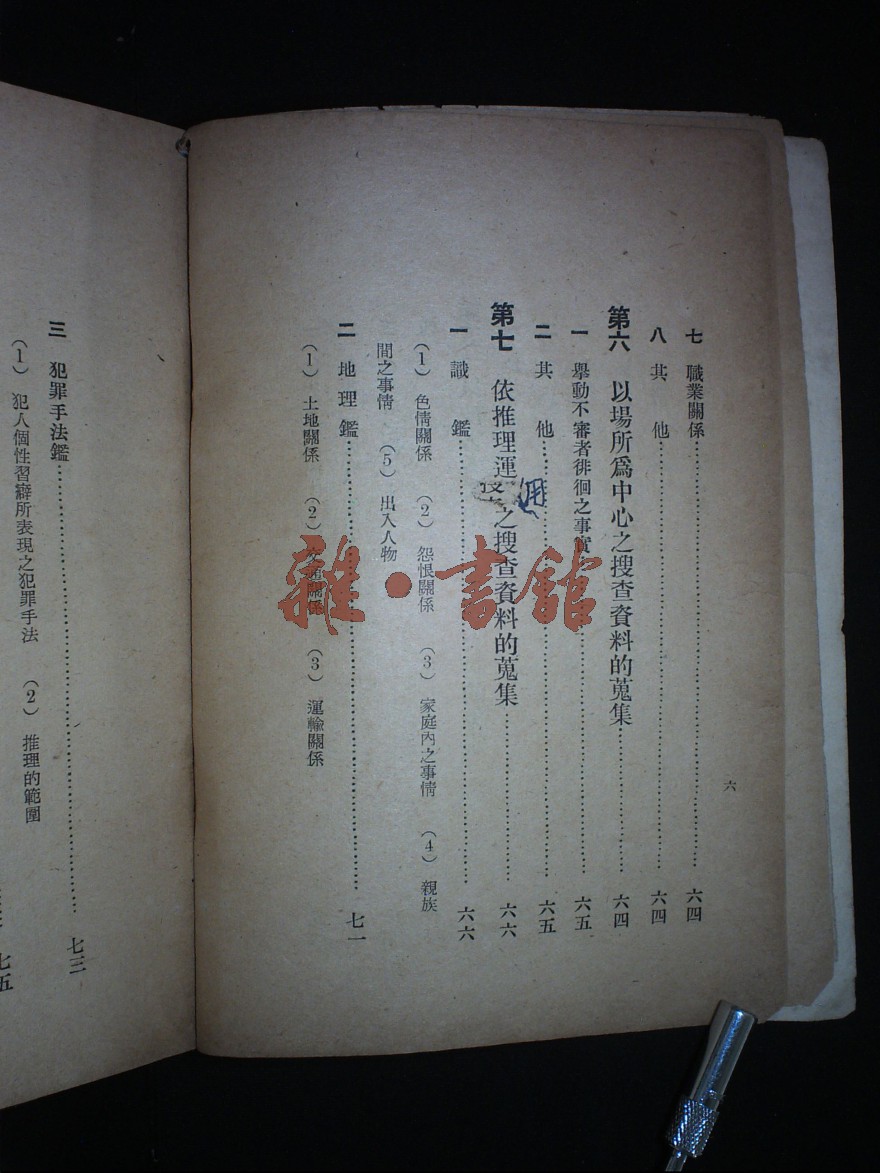 七 職業關係……六四
八 其 他……六四
第六 以場所爲中心之搜查資料的蒐集……六四
一 擧動不審者徘徊之事實……六五
二 其 他……六五
第七 依推理運用之搜查資料的蒐集……六六
一 識 鑑……六六
（1） 色情關係 （2） 怨恨關係 （3） 家庭內之事情 （4） 親族
間之事情 （5） 出入人物
二 地 理 鑑……七一
（1） 土地關係 （2） 交通關係 （3） 運輸關係
六
三 犯罪手法鑑……七三
（1） 犯人個性習癖所表現之犯罪手法 （2） 推理的範圍
七五
雜·書館